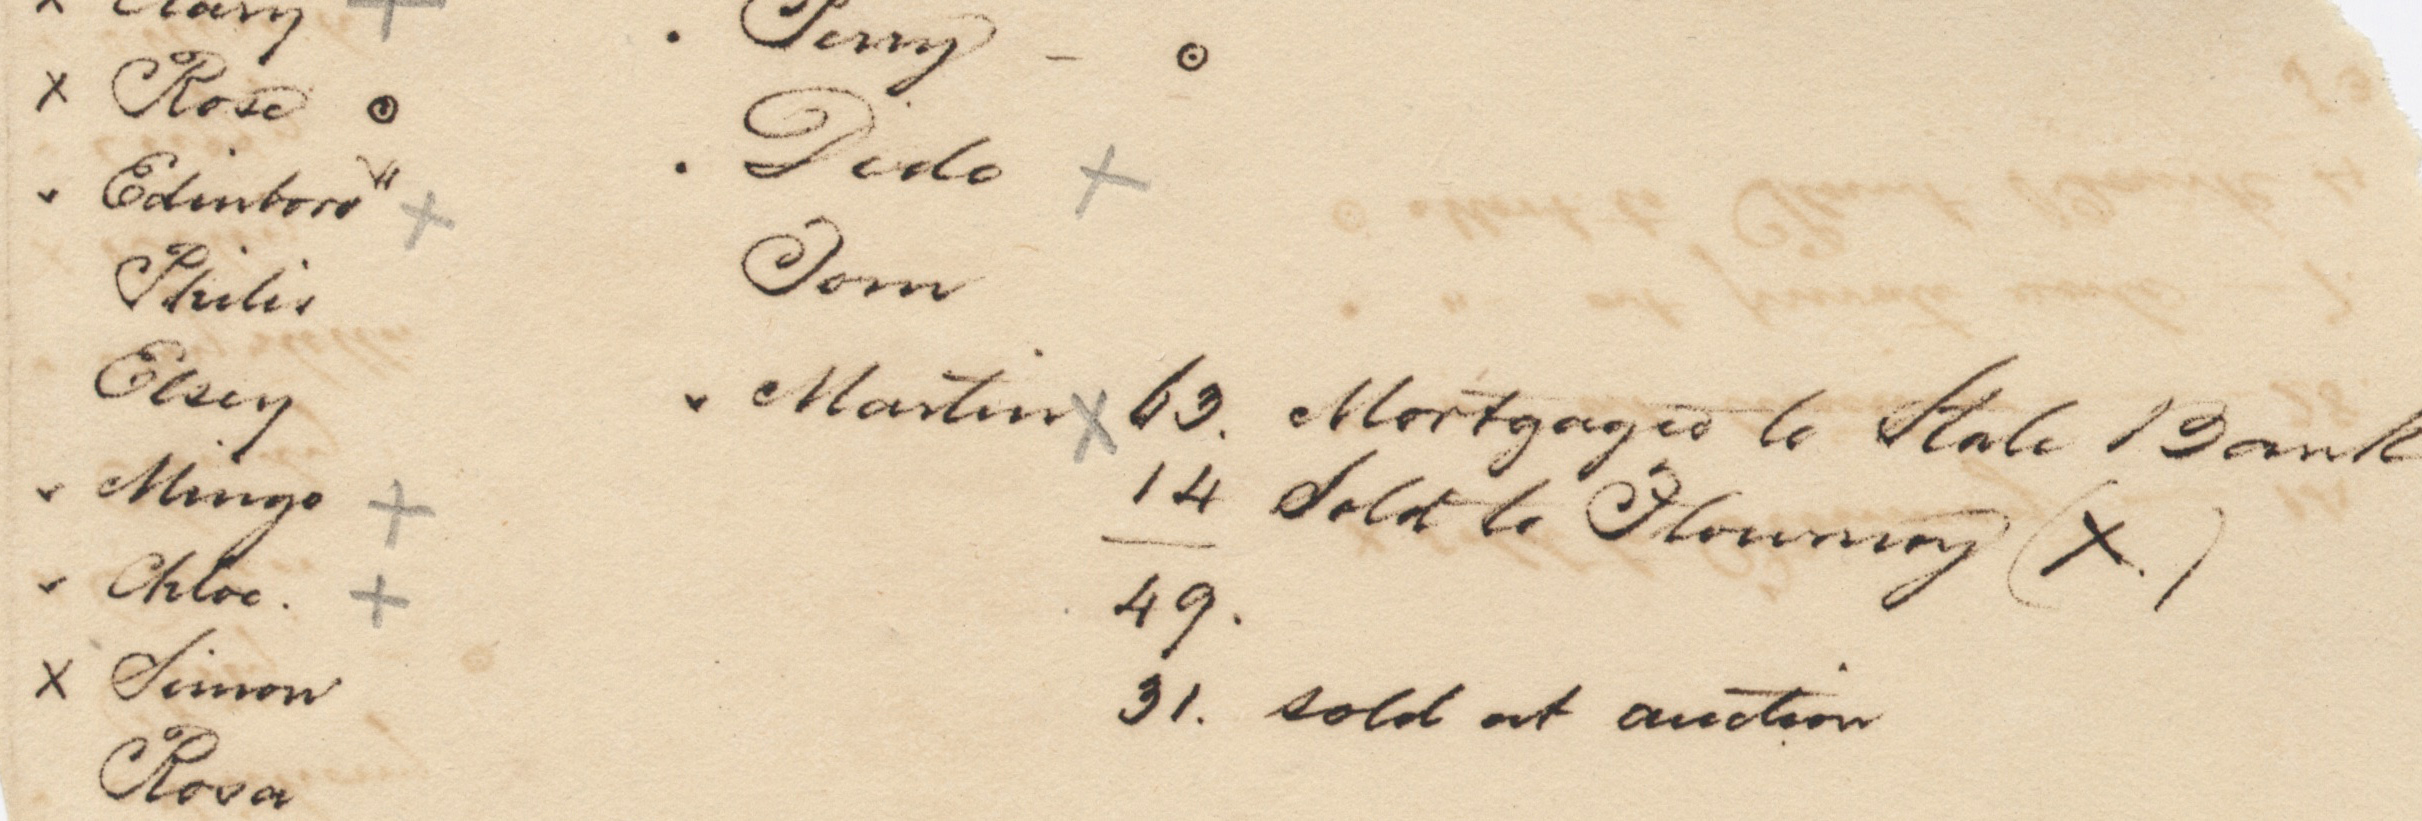 x Mary +
x Rose ⊙
Edinboro" +
Philis
Elsey
Mingo +
Chloe. +
x Simon
Rosa
. Perry – ⊙
. Dido +
Tom
Martin x
63. Mortgaged to State Bank
14 Sold to Flournoy (X.)
49.
31. sold at auction